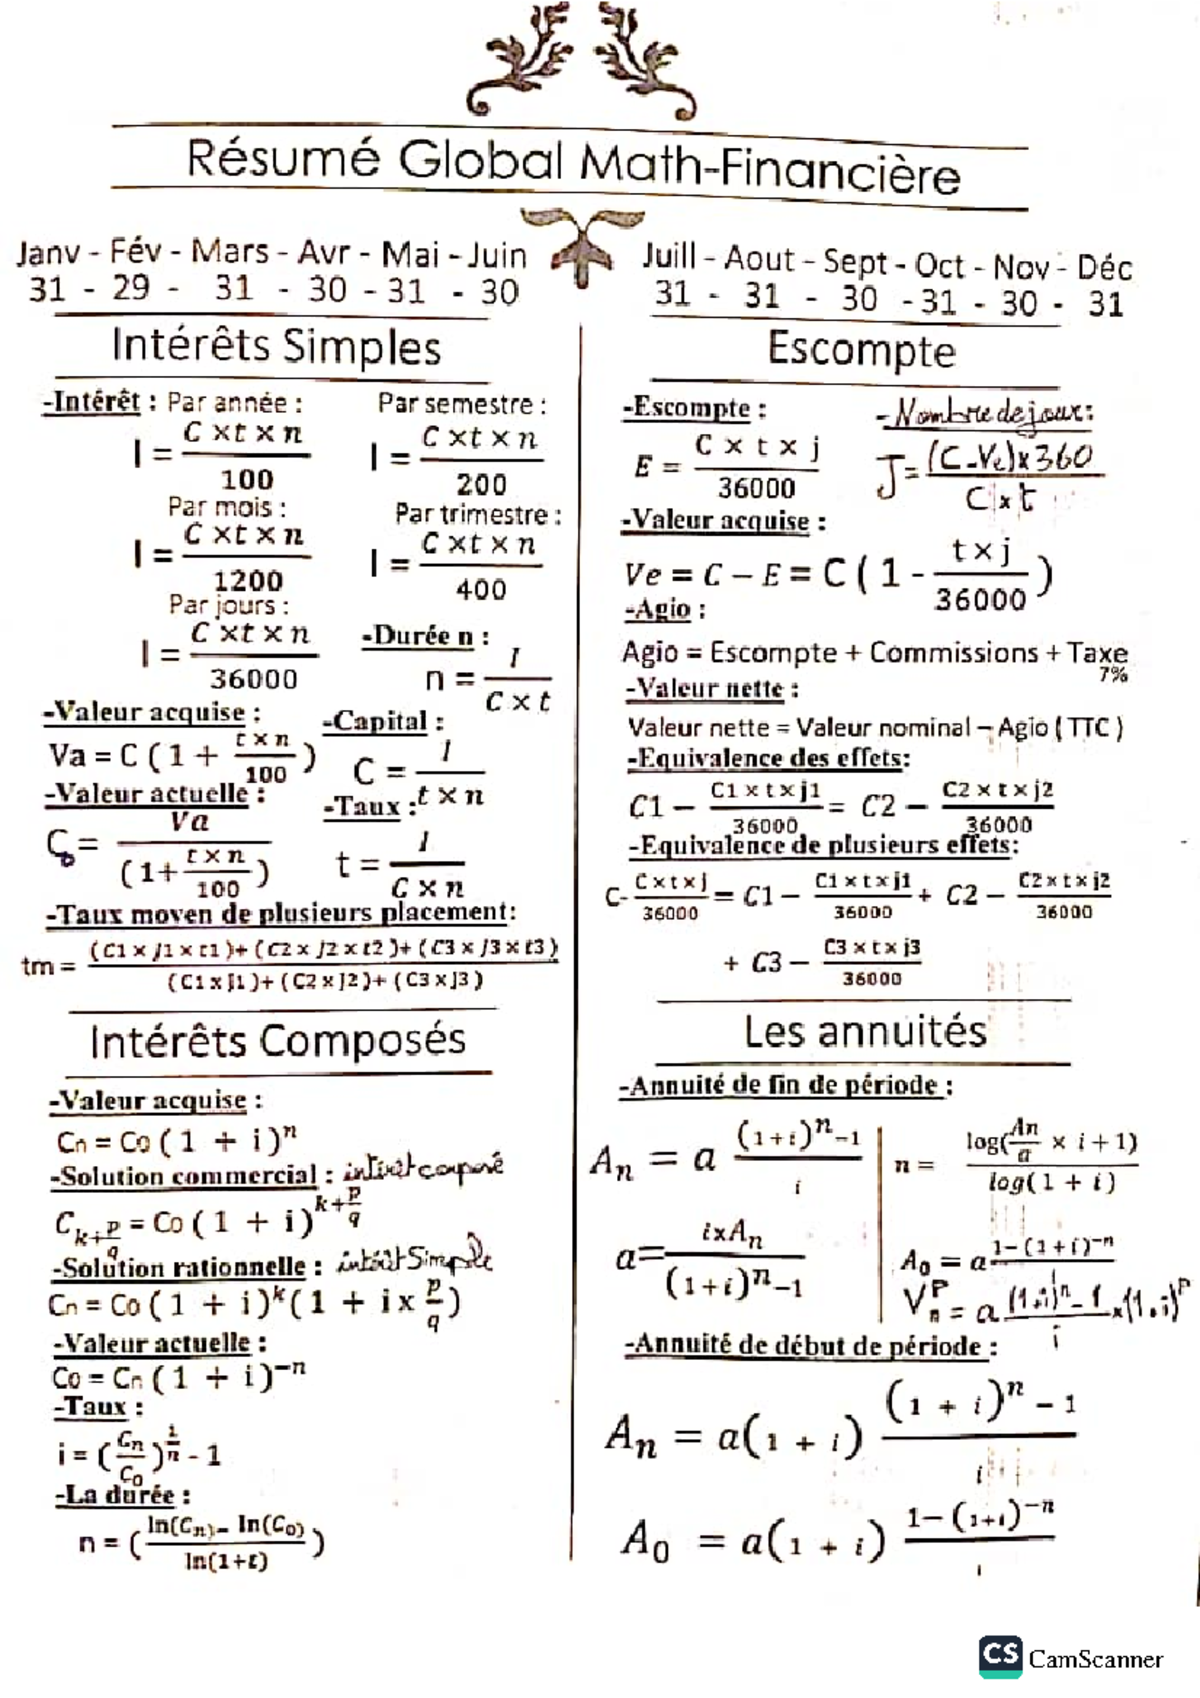 Résumé Global Math-Financière
Janv - Fév - Mars - Avr - Mai - Juin
31 - 29 - 31 - 30 - 31 - 30
Juill - Aout - Sept - Oct - Nov - Déc
31 - 31 - 30 - 31 - 30 - 31
Intérêts Simples
-Intérêt : Par année :
I = C × t × n / 100
Par semestre :
I = C × t × n / 200
Par mois :
I = C × t × n / 1200
Par trimestre :
I = C × t × n / 400
Par jours :
I = C × t × n / 36000
-Durée n :
n = I / C × t
-Valeur acquise :
Va = C ( 1 + t × n / 100 )
-Capital :
C = I / t × n
-Valeur actuelle :
C₀ = Va / (1 + t × n / 100 )
-Taux :
t = I / C × n
-Taux moyen de plusieurs placement:
tm = (C1 × J1 × t1 )+ (C2 × J2 × t2 )+ (C3 × J3 × t3) / (C1 x J1 )+ (C2 x J2 )+ (C3 x J3 )
Intérêts Composés
-Valeur acquise :
Cn = Co ( 1 + i )ⁿ
-Solution commercial : intérêt composé
C_{k+p/q} = Co ( 1 + i )^{k+p/q}
-Solution rationnelle : intérêt Simple
Cn = Co ( 1 + i )^k (1 + i x p/q)
-Valeur actuelle :
Co = Cn ( 1 + i )⁻ⁿ
-Taux :
i = (Cn/C₀)^{1/n} - 1
-La durée :
n = ( ln(Cn) – ln(C₀) / ln(1+t) )
Escompte
-Escompte :
E = C × t × j / 36000
-Nombre de jour :
J = (C - Ve) x 360 / C x t
-Valeur acquise :
Ve = C – E = C ( 1 - t × j / 36000 )
-Agio :
Agio = Escompte + Commissions + Taxe
7%
-Valeur nette :
Valeur nette = Valeur nominal – Agio ( TTC )
-Equivalence des effets:
C1 – C1 × t × j1 / 36000 = C2 – C2 × t × j2 / 36000
-Equivalence de plusieurs effets:
C- C × t × j / 36000 = C1 – C1 × t × j1 / 36000 + C2 – C2 × t × j2 / 36000
+ C3 – C3 × t × j3 / 36000
Les annuités
-Annuité de fin de période :
An = a (1+i)ⁿ–1 / i
n = log(An/a × i + 1) / log(1 + i)
a = i x An / (1+i)ⁿ–1
A₀ = a 1–(1+i)⁻ⁿ / i
Vₙᴾ = a (1+i)ⁿ - 1 / i x (1+i)ᴾ
-Annuité de début de période :
An = a(1 + i) (1 + i)ⁿ – 1 / i
A₀ = a(1 + i) 1– (1+i)⁻ⁿ / i
CS CamScanner